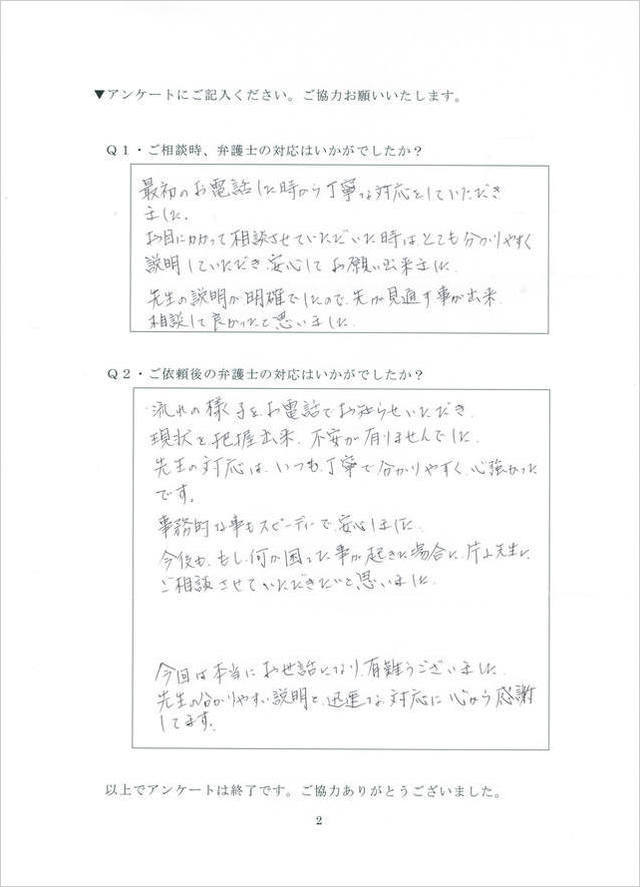 ▼アンケートにご記入ください。ご協力お願いいたします。
Q1・ご相談時、弁護士の対応はいかがでしたか？
最初のお電話した時から丁寧な対応をしていただき
ました。
お目にかかって相談させていただいた時はとても分かりやすく
説明していただき安心してお願い出来ました。
先生の説明が明確でしたので、先が見通す事が出来、
相談して良かったと思いました。
Q2・ご依頼後の弁護士の対応はいかがでしたか？
流れの様子をお電話でお知らせいただき、
現状を把握出来、不安が有りませんでした。
先生の対応は、いつも丁寧で分かりやすく、心強かった
です。
事務的な事もスピーディーで、安心しました。
今後も、もし何か困った事が起きた場合に、片上先生に
ご相談させていただきたいと思いました。
今回は本当にお世話になり、有難うございました。
先生の分かりやすい説明と、迅速な対応に心から感謝
してます。
以上でアンケートは終了です。ご協力ありがとうございました。
2